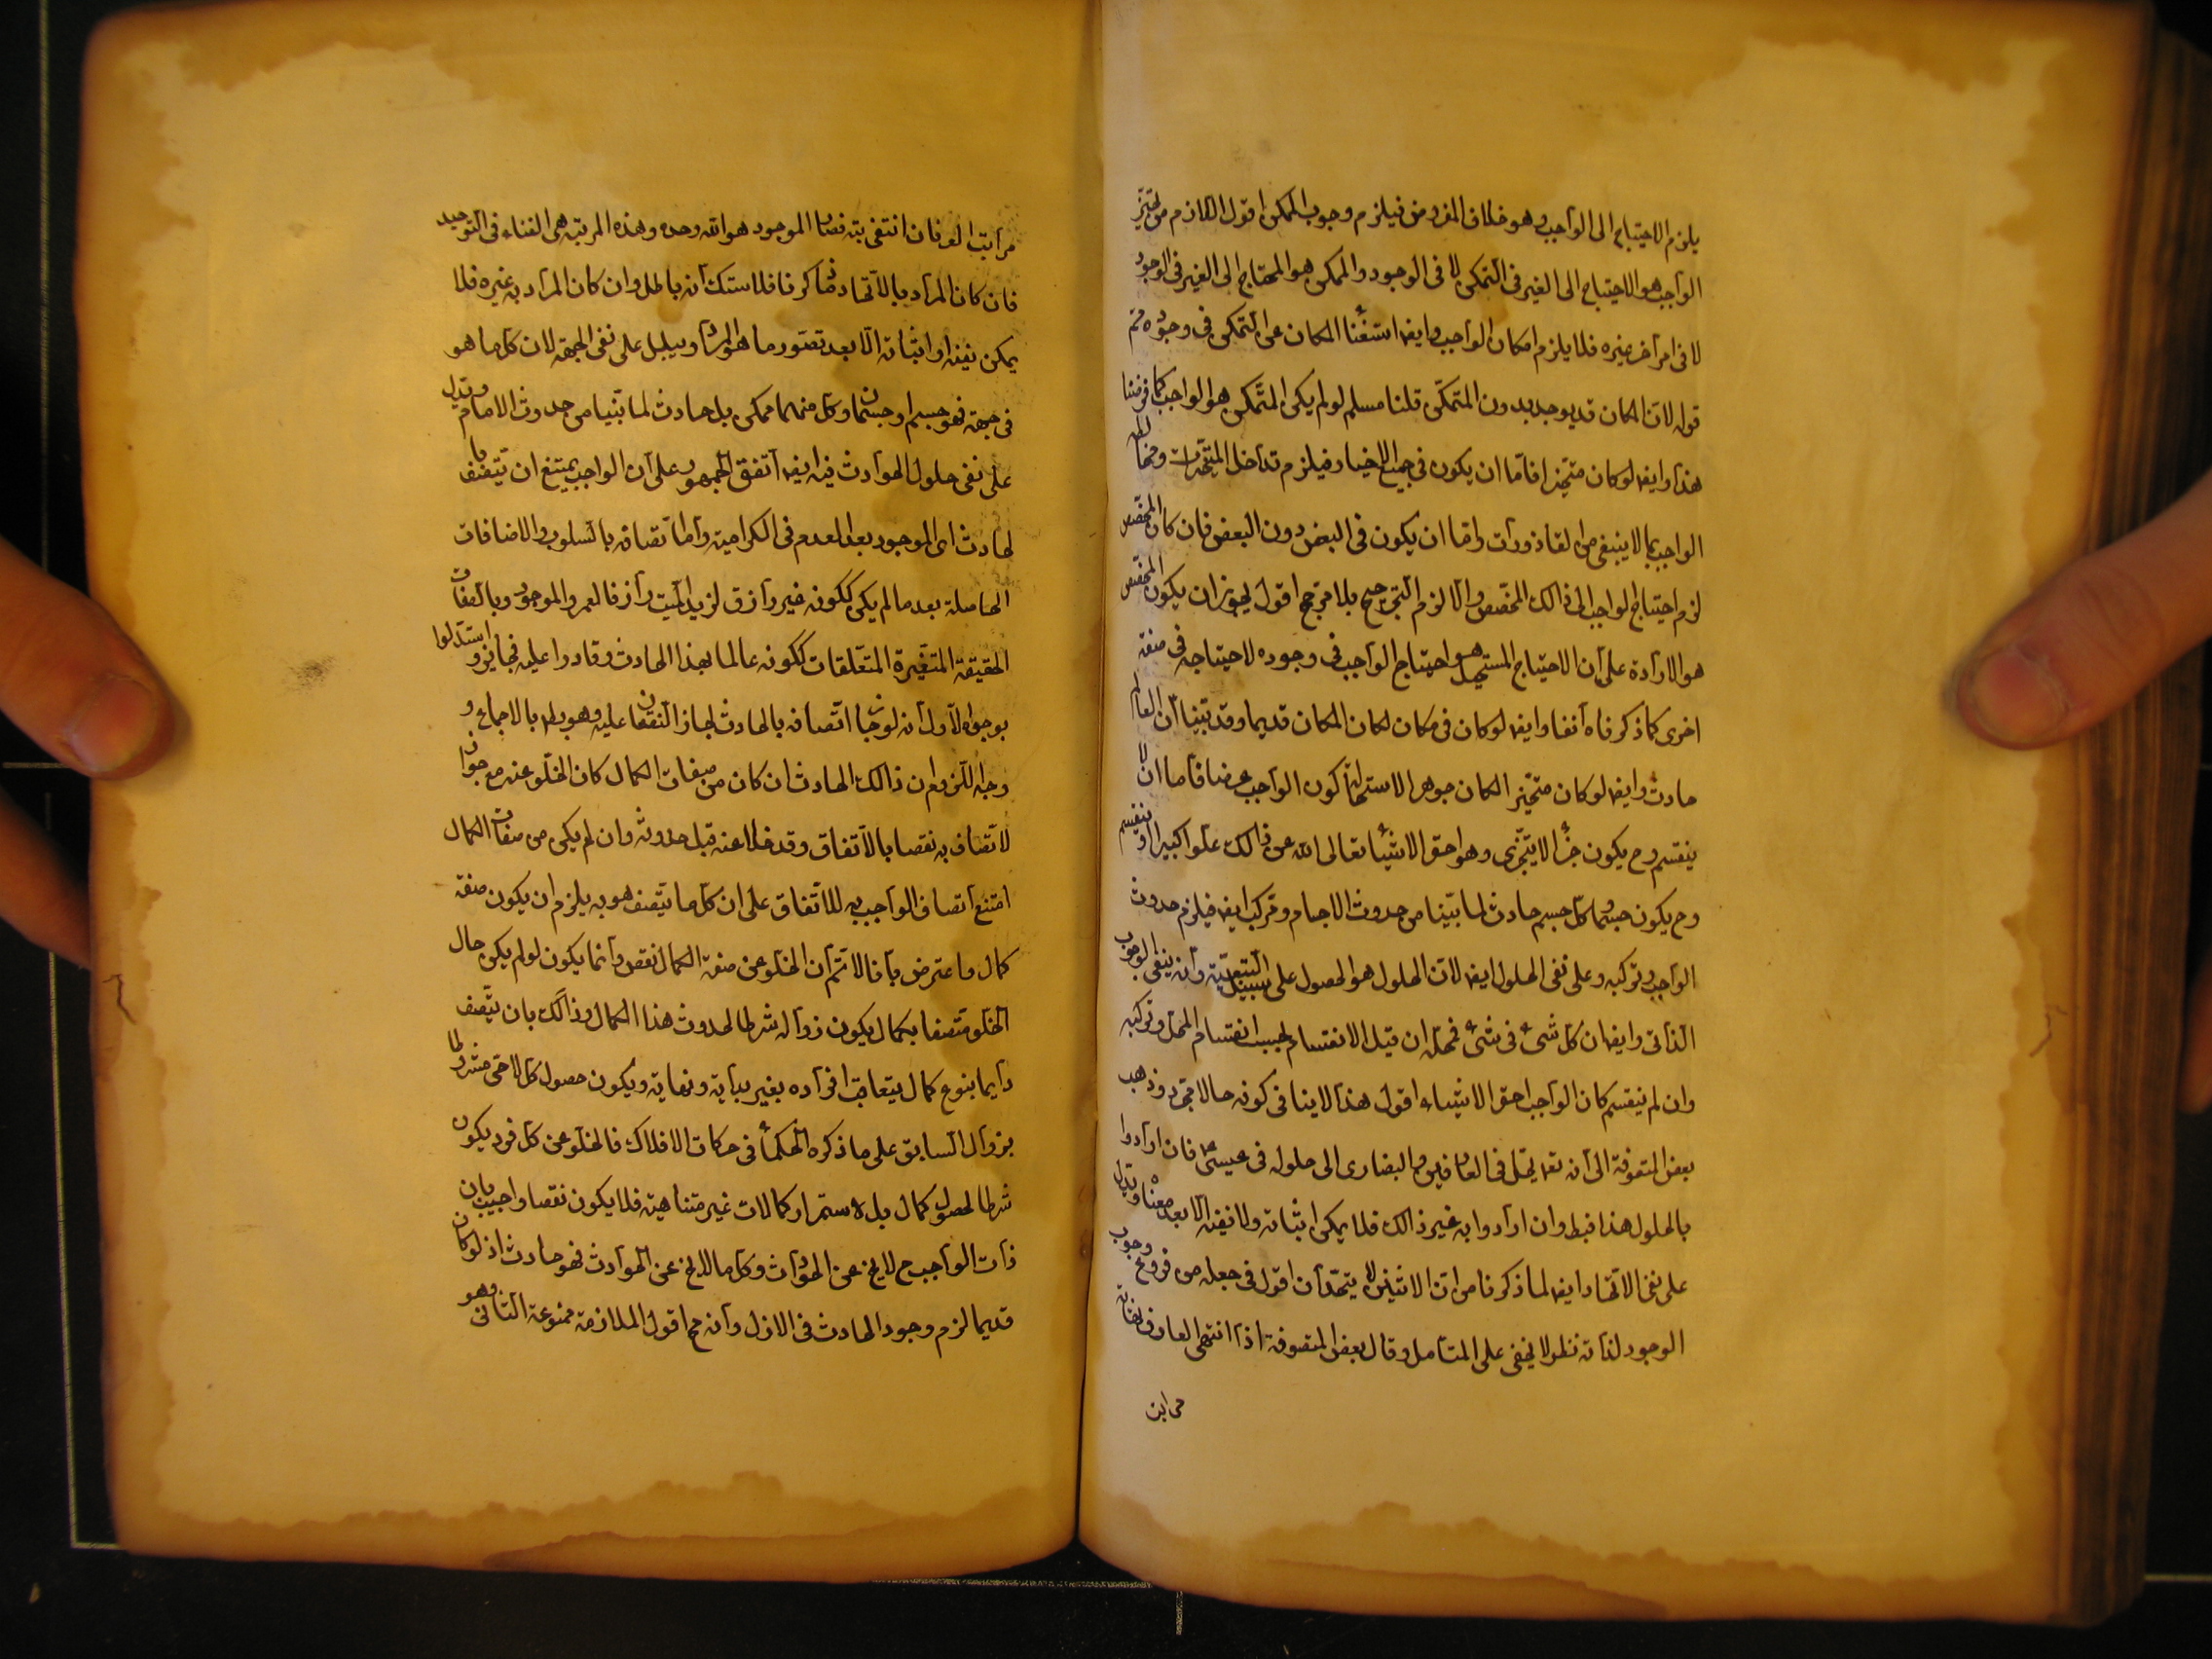 يلزم الاحتياج الى الواجب وهو خلاف المفروض فيلزم وجوب الممكن اقول اللازم من تحيّز
الواجب هو الاحتياج الى الغير فى التمكن لا فى الوجود والممكن هو المحتاج الى الغير فى الوجود
لا فى امر آخر غيره فلا يلزم امكان الواجب وايضا استغناء المكان عن التمكن فى وجوده مم
قوله لان المكان قد يوجد بدون المتمكّن قلنا مسلم لو لم يكن المتمكن هو الواجب كما فرضنا
هذا وايضا لو كان متحيّزا فاما ان يكون فى جميع الاحياز فيلزم تداخل المتحيّزات ومخالطة
الواجب بما لا ينبغى من القاذورات واما ان يكون فى البعض دون البعض فان كان المخصص
لزم احتياج الواجب الى ذالك المخصّص والا لزم الترجيح بلا مرجح اقول يجوز ان يكون المخصص
هو الارادة على ان الاحتياج المستحيل هو احتياج الواجب فى وجوده لا احتياجه فى صفة
اخرى كما ذكرناه آنفا وايضا لو كان فى مكان لكان المكان قديما وقد بيّنا ان العالم
حادث وايضا لو كان متحيّز المكان جوهرا لاستحالة كون الواجب عرضا فاما ان لا
ينقسم وح يكون جزأ لا يتجزى وهو احقر الاشياء تعالى الله عن ذالك علوا كبيرا او ينقسم
وح يكون جسما وكلّ جسم حادث لما بيّنا من حدوث الاجسام وتركبها ايضا فيلزم حدوث
الواجب وتركبه وعلى نفى الحلول ايضا لان الحلول هو الحصول على سبيل التبعيّة وانه ينفى الوجوب
الذاتى وايضا ان كل شئ فى شئ فمحله ان قبل الانقسام بحسب انقسام المحل وتركبه
وان لم ينقسم كان الواجب احقر الاشياء اقول هذا لا ينافى كونه حالا فى مجرد وذهب
بعض المتصوفة الى انه تعـ يحل فى العارفين والنصارى الى حلوله فى عيسى ع فان ارادوا
بالحلول هذا فبط وان ارادوا به غير ذالك فلا يمكن اثباته ولا نفيه الا بعد معناه ويدل
على نفى الاتحاد ايضا لما ذكرنا من ان الاثنين لا يتحدان اقول فى جعله من فروع وجوب
الوجود لذاته نظر لا يخفى على المتامل وقال بعض المتصوفة اذا انتهى العارف نهاية
مراتب
مراتب العرفان انتفى هويته فصار الموجود هو الله وحده وهذه المرتبة هى الفناء فى التوحيد
فان كان المراد بالاتحاد ما ذكرنا فلا شك انه باطل وان كان المراد به غيره فلا
يمكن نفيه او اثباته الا بعد تصور ما هو المراد ويدل على نفى الجهة لان كل ما هو
فى جهة فهو جسم او جسمانى وكل منهما ممكن بل حادث لما بيّنا من حدوث الاجسام ويدل
على نفى حلول الحوادث فيه ايضا اتفق الجمهور على ان الواجب يمتنع ان يتصف
لحادث اى الموجود بعد العدم فى الكرامية واما اتصافه بالسلوب والاضافات
الحاصلة بعد ما لم يكن ككونه غير رازق لزيد الميت رازقا لعمرو الموجود وبالصفات
الحقيقة المتغيرة المتعلقات ككونه عالما بهذا الحادث وقادرا عليه فجايز واستدلوا
بوجوه الاول انه لو جاز اتصافه بالحادث لجاز النقصان عليه وهو بط بالاجماع و
وجه اللزوم ان ذالك الحادث ان كان من صفات الكمال كان الخلو عنه مع جواز
الاتصاف به نقصا بالاتفاق وقد خلا عنه قبل حدوثه وان لم يكن من صفات الكمال
امتنع اتصاف الواجب به للاتفاق على ان كل ما يتصف هو به يلزم ان يكون صفة
كمال واعترض بانا لا نم ان الخلو عن صفة الكمال نقص وانما يكون لو لم يكن حال
الخلو متصفا بكمال يكون زواله شرطا لحدوث هذا الكمال وذالك بان يتّصف
دايما بنوع كمال يتعاقب افراده بغير بداية ونهاية ويكون حصول كل لاحق مشروطا
بزوال السابق على ما ذكره الحكماء فى حركات الافلاك فالخلو عن كل فرد يكون
شرطا لحصول كمال بل لاستمرار كمالات غير متناهية فلا يكون نقصا واجيب بان
ذات الواجب ح لا يخ عن الحوادث وكل ما لا يخ عن الحوادث فهو حادث اذ لو كان
قديما لزم وجود الحادث فى الازل وانه مح اقول الملازمة ممنوعة الثانى وهو